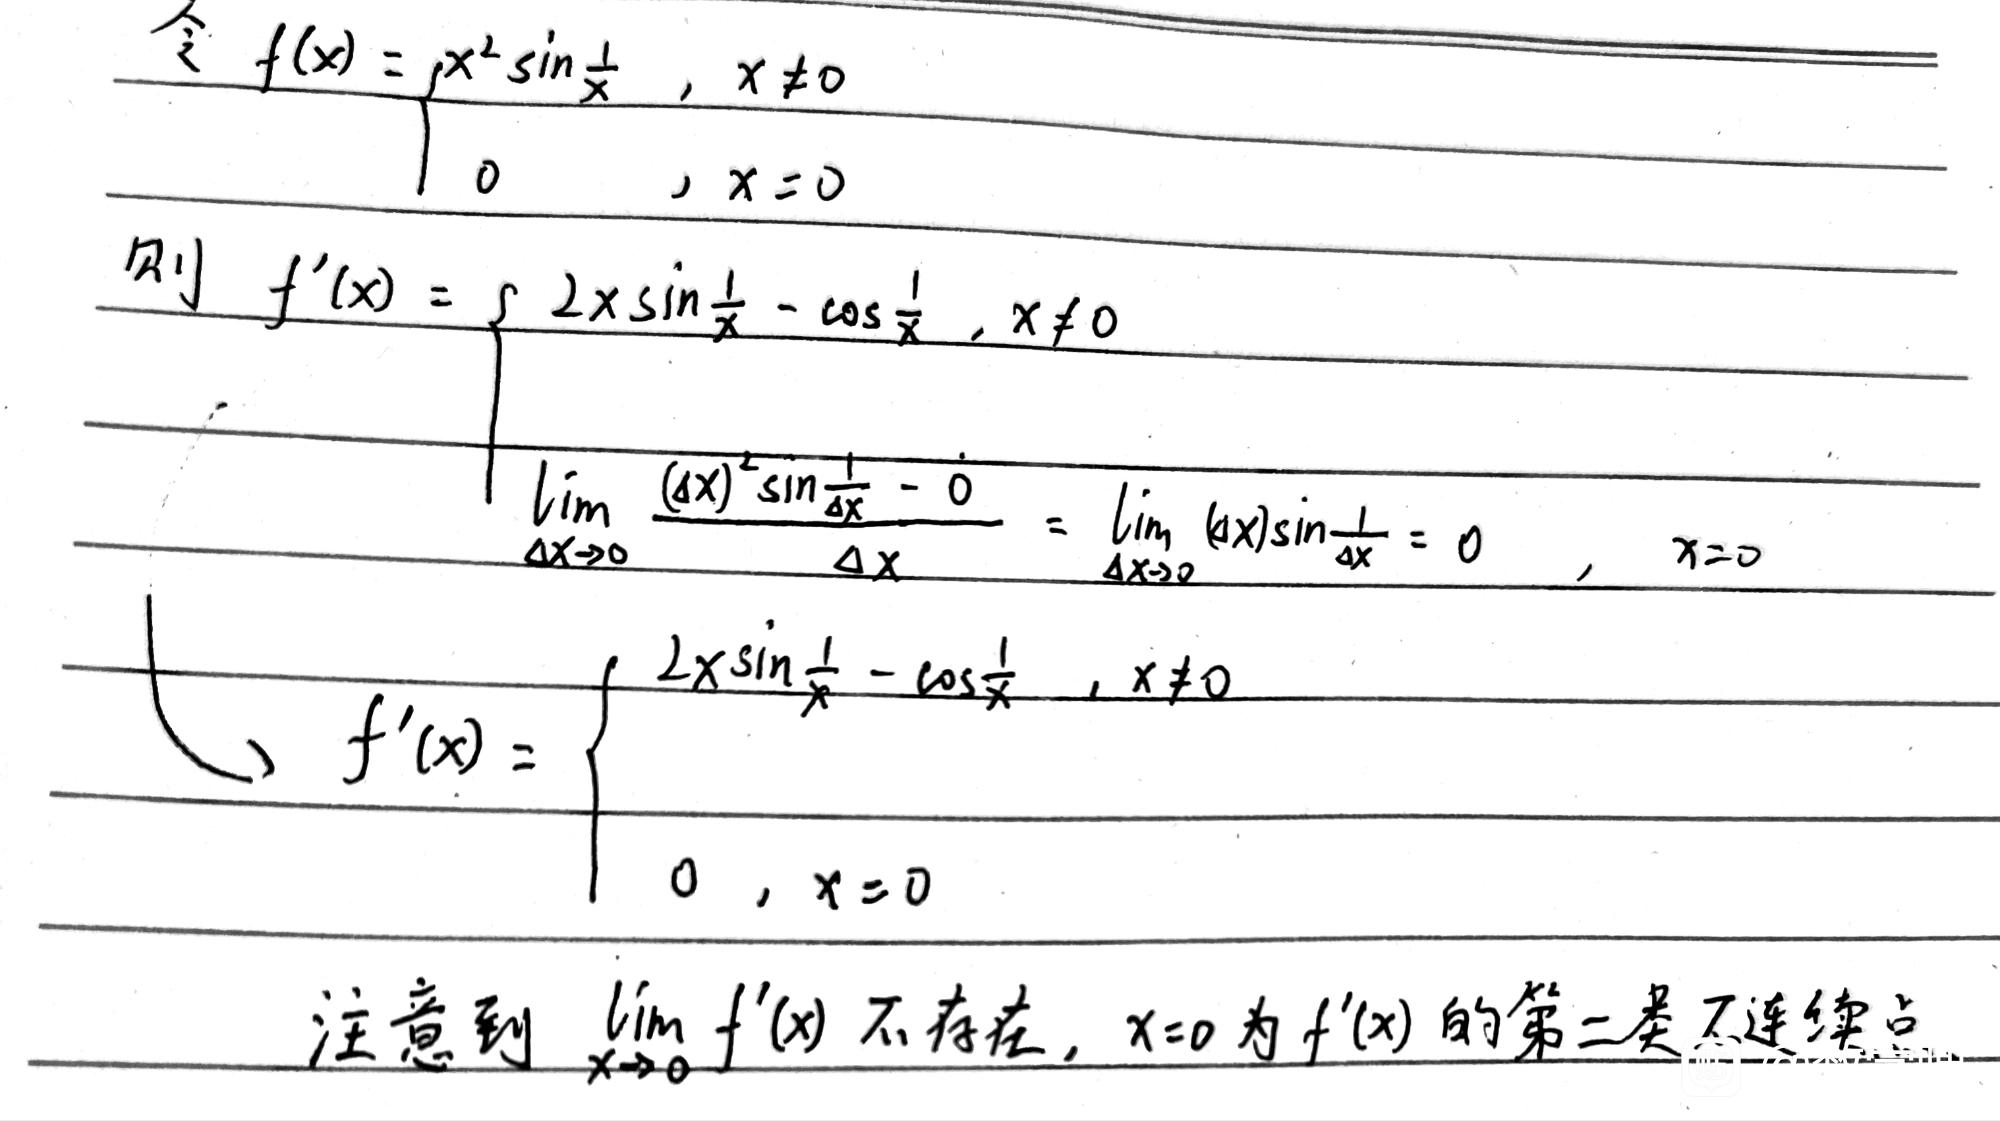 令 f(x) = { x² sin 1/x , x ≠ 0
0 , x = 0
则 f'(x) = { 2x sin 1/x - cos 1/x , x ≠ 0
lim Δx→0 ((Δx)² sin 1/Δx - 0)/Δx = lim Δx→0 (Δx) sin 1/Δx = 0 , x = 0
f'(x) = { 2x sin 1/x - cos 1/x , x ≠ 0
0 , x = 0
注意到 lim x→0 f'(x) 不存在, x=0 为 f'(x) 的第二类不连续点